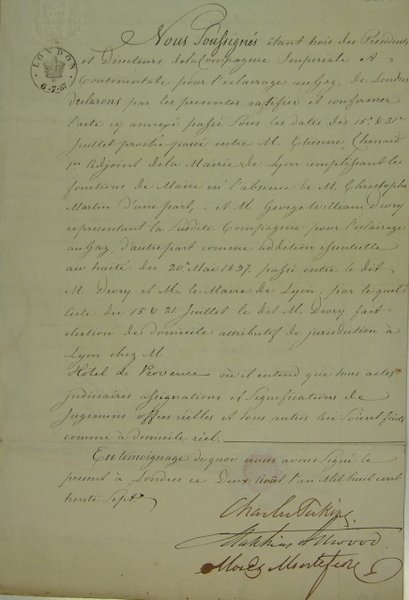 LONDON
6·7·37
Nous Soussignés étant trois des Présidents
et Directeurs de la Compagnie Impériale et
Continentale pour l'éclairage au Gaz, de Londres
déclarons par les présentes ratifier et confirmer
l'acte cy annexé passé sous les dates des 15 & 21
Juillet proche passé entre M. Etienne Chinard
1er adjoint de la Mairie de Lyon remplissant les
fonctions de Maire en l'absence de M. Christophe
Martin d'une part, et M. George William Drory
représentant la susdite Compagnie pour l'éclairage
au Gaz, d'autre part comme addition essentielle
au traité du 20 Mai 1837 passé entre le dit
M. Drory et M. le Maire de Lyon, par le quel
acte du 15 & 21 Juillet le dit M. Drory fait
élection de domicile attributif de juridiction à
Lyon chez M
Hôtel de Provence où il entend que tous actes
judiciaires assignations et significations de
Jugemens offres réelles et tous autres lui soient faits
comme à domicile réel.
En témoignage de quoi nous avons signé le
présent à Londres ce Deux Août l'an Mil huit cent
trente Sept.
Charles Perkins
Matthias Attwood
Moses Montefiore